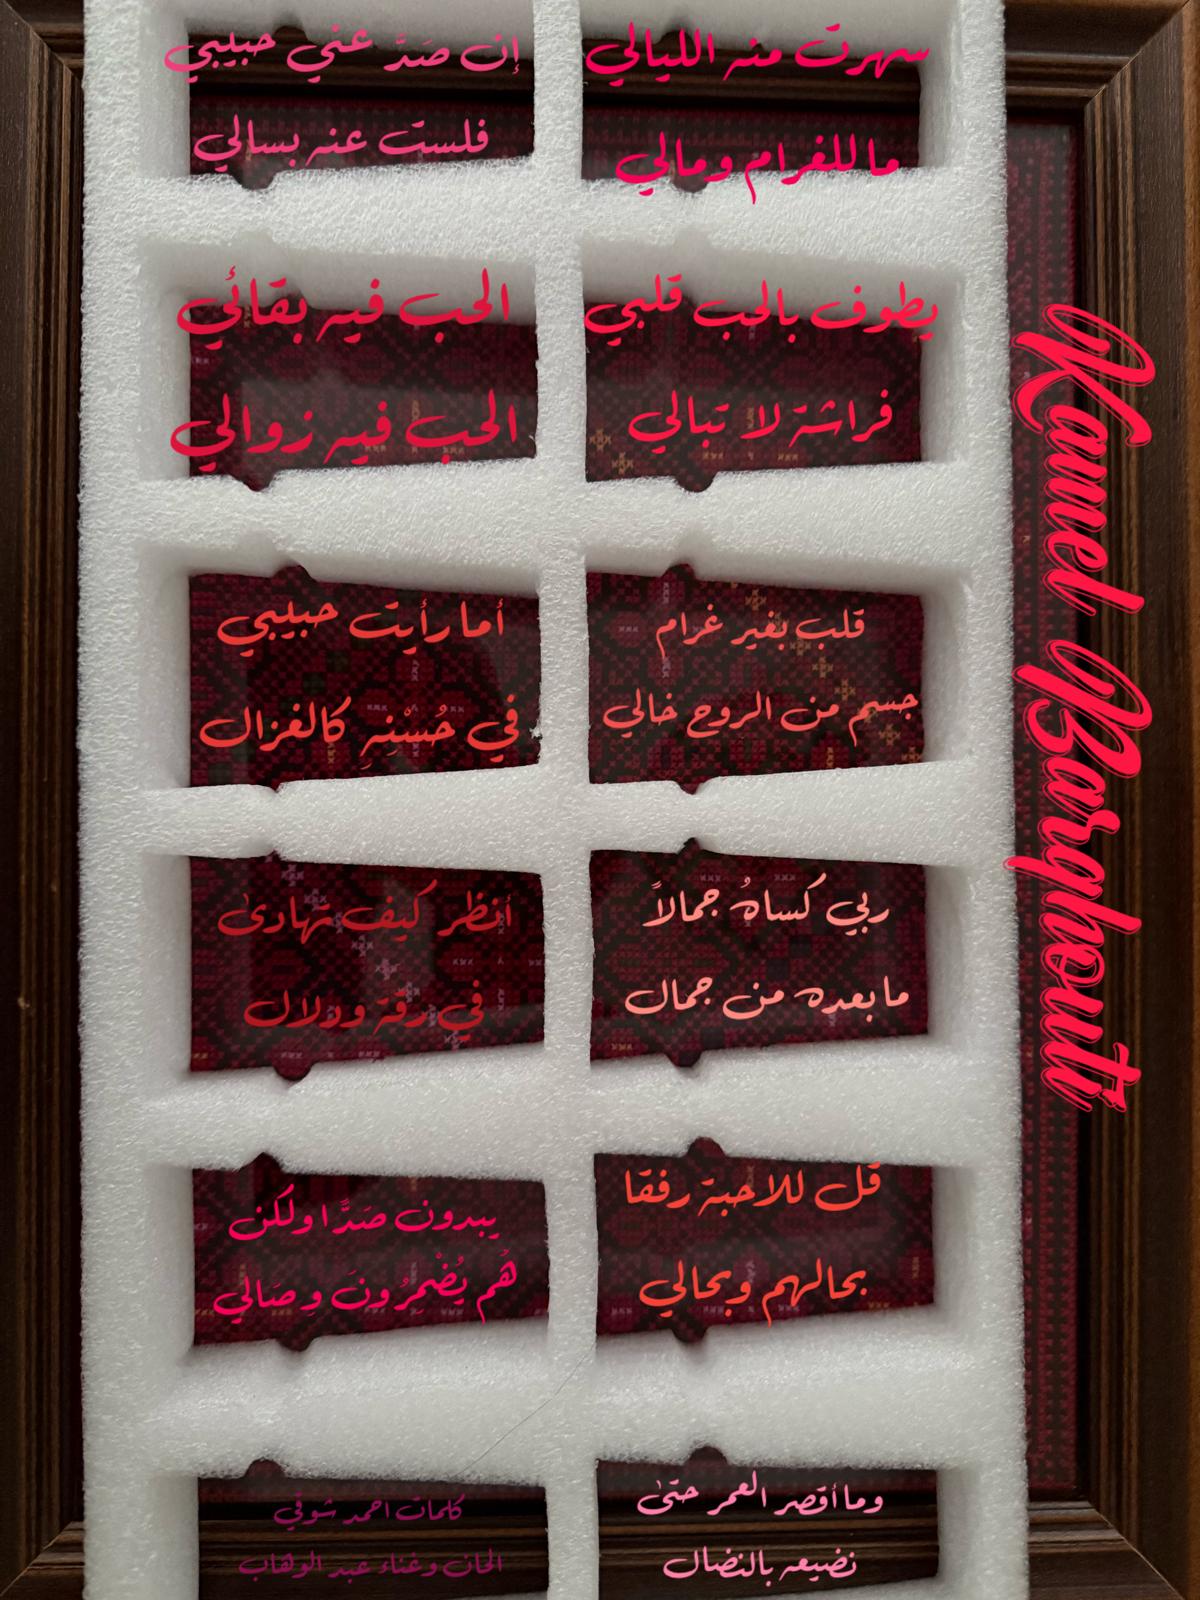 سهرت منه الليالي
ما للغرام ومالي
إن صَدَّ عني حبيبي
فلست عنه بسالي
يطوف بالحب قلبي
فراشة لا تبالي
الحب فيه بقائي
الحب فيه زوالي
قلب بغير غرام
جسم من الروح خالي
أما رأيت حبيبي
في حُسْنِهِ كالغزال
ربي كساهُ جمالاً
ما بعده من جمال
أنظر كيف تهادى
في رقة ودلال
قل للاحبة رفقا
بحالهم وبحالي
يبدون صَدًّا ولكن
هُم يُضْمِرُونَ وِصَالي
وما أقصر العمر حتى
نضيعه بالنضال
كلمات احمد شوقي
الحان وغناء عبد الوهاب
Kamel Barghouti